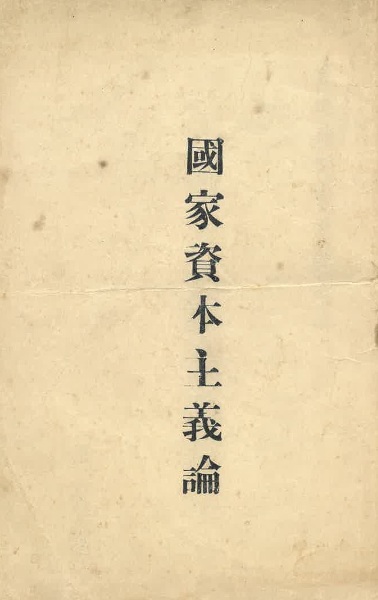 國家資本主義論